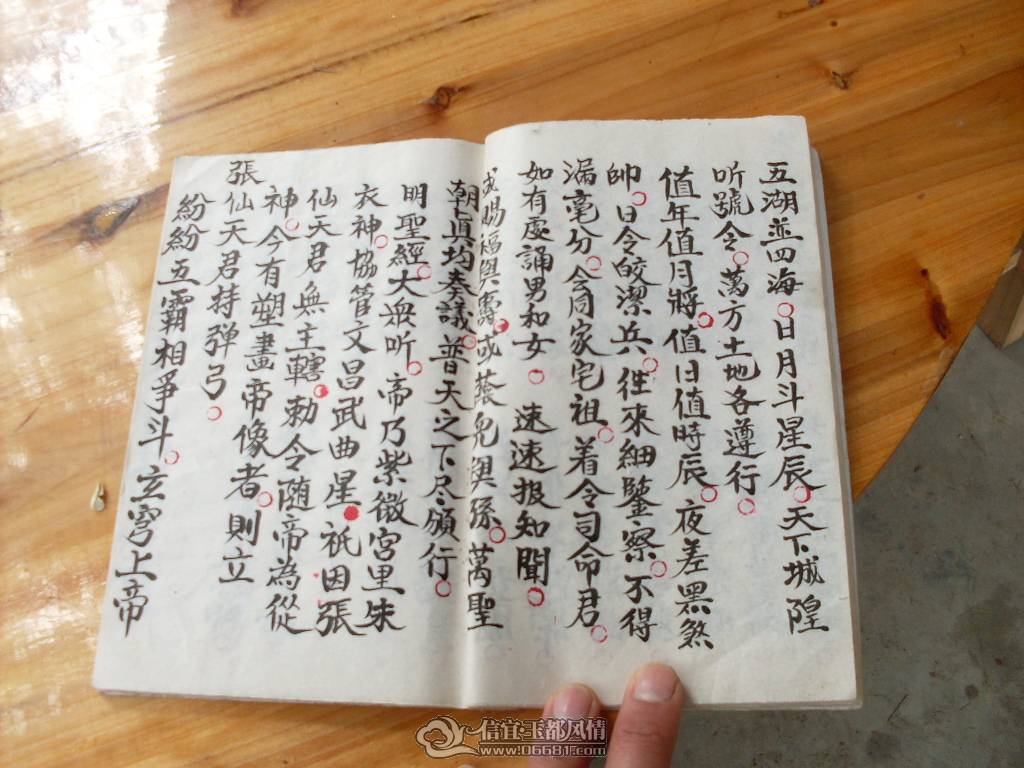 五湖並四海。日月斗星辰。天下城隍
听號令。萬方土地各遵行。
值年值月將。值日值時辰。夜差黑煞
帅。日令皎潔兵。往來細鑒察。不得
漏毫分。会同家宅祖。着令司命君。
如有處誦男和女。速速报知聞。
或賜福與壽。或蔭兒與孫。萬聖
朝真均奏議。普天之下尽頒行。
明聖經。大衆听。帝乃紫微宮里朱
衣神。協管文昌武曲星。祇因張
仙天君無主轄。勅令随帝為從
神。今有塑畫帝像者。則立
張仙天君持弹弓。
紛紛五霸相爭斗。玄穹上帝
信宜玉都风情
www.06681.com